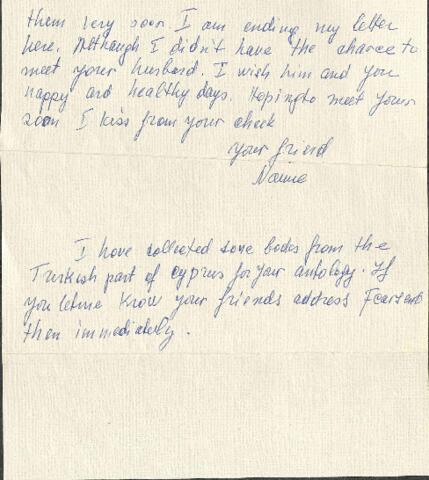 them very soon. I am ending my letter
here. Although I didn't have the chance to
meet your husband. I wish him and you
happy and healthy days. Hoping to meet your
soon I kiss from your cheek
your friend
I have collected some books from the
Turkish part of cyprus for your antology. If
you letme know your friends address I can send
them immediately.